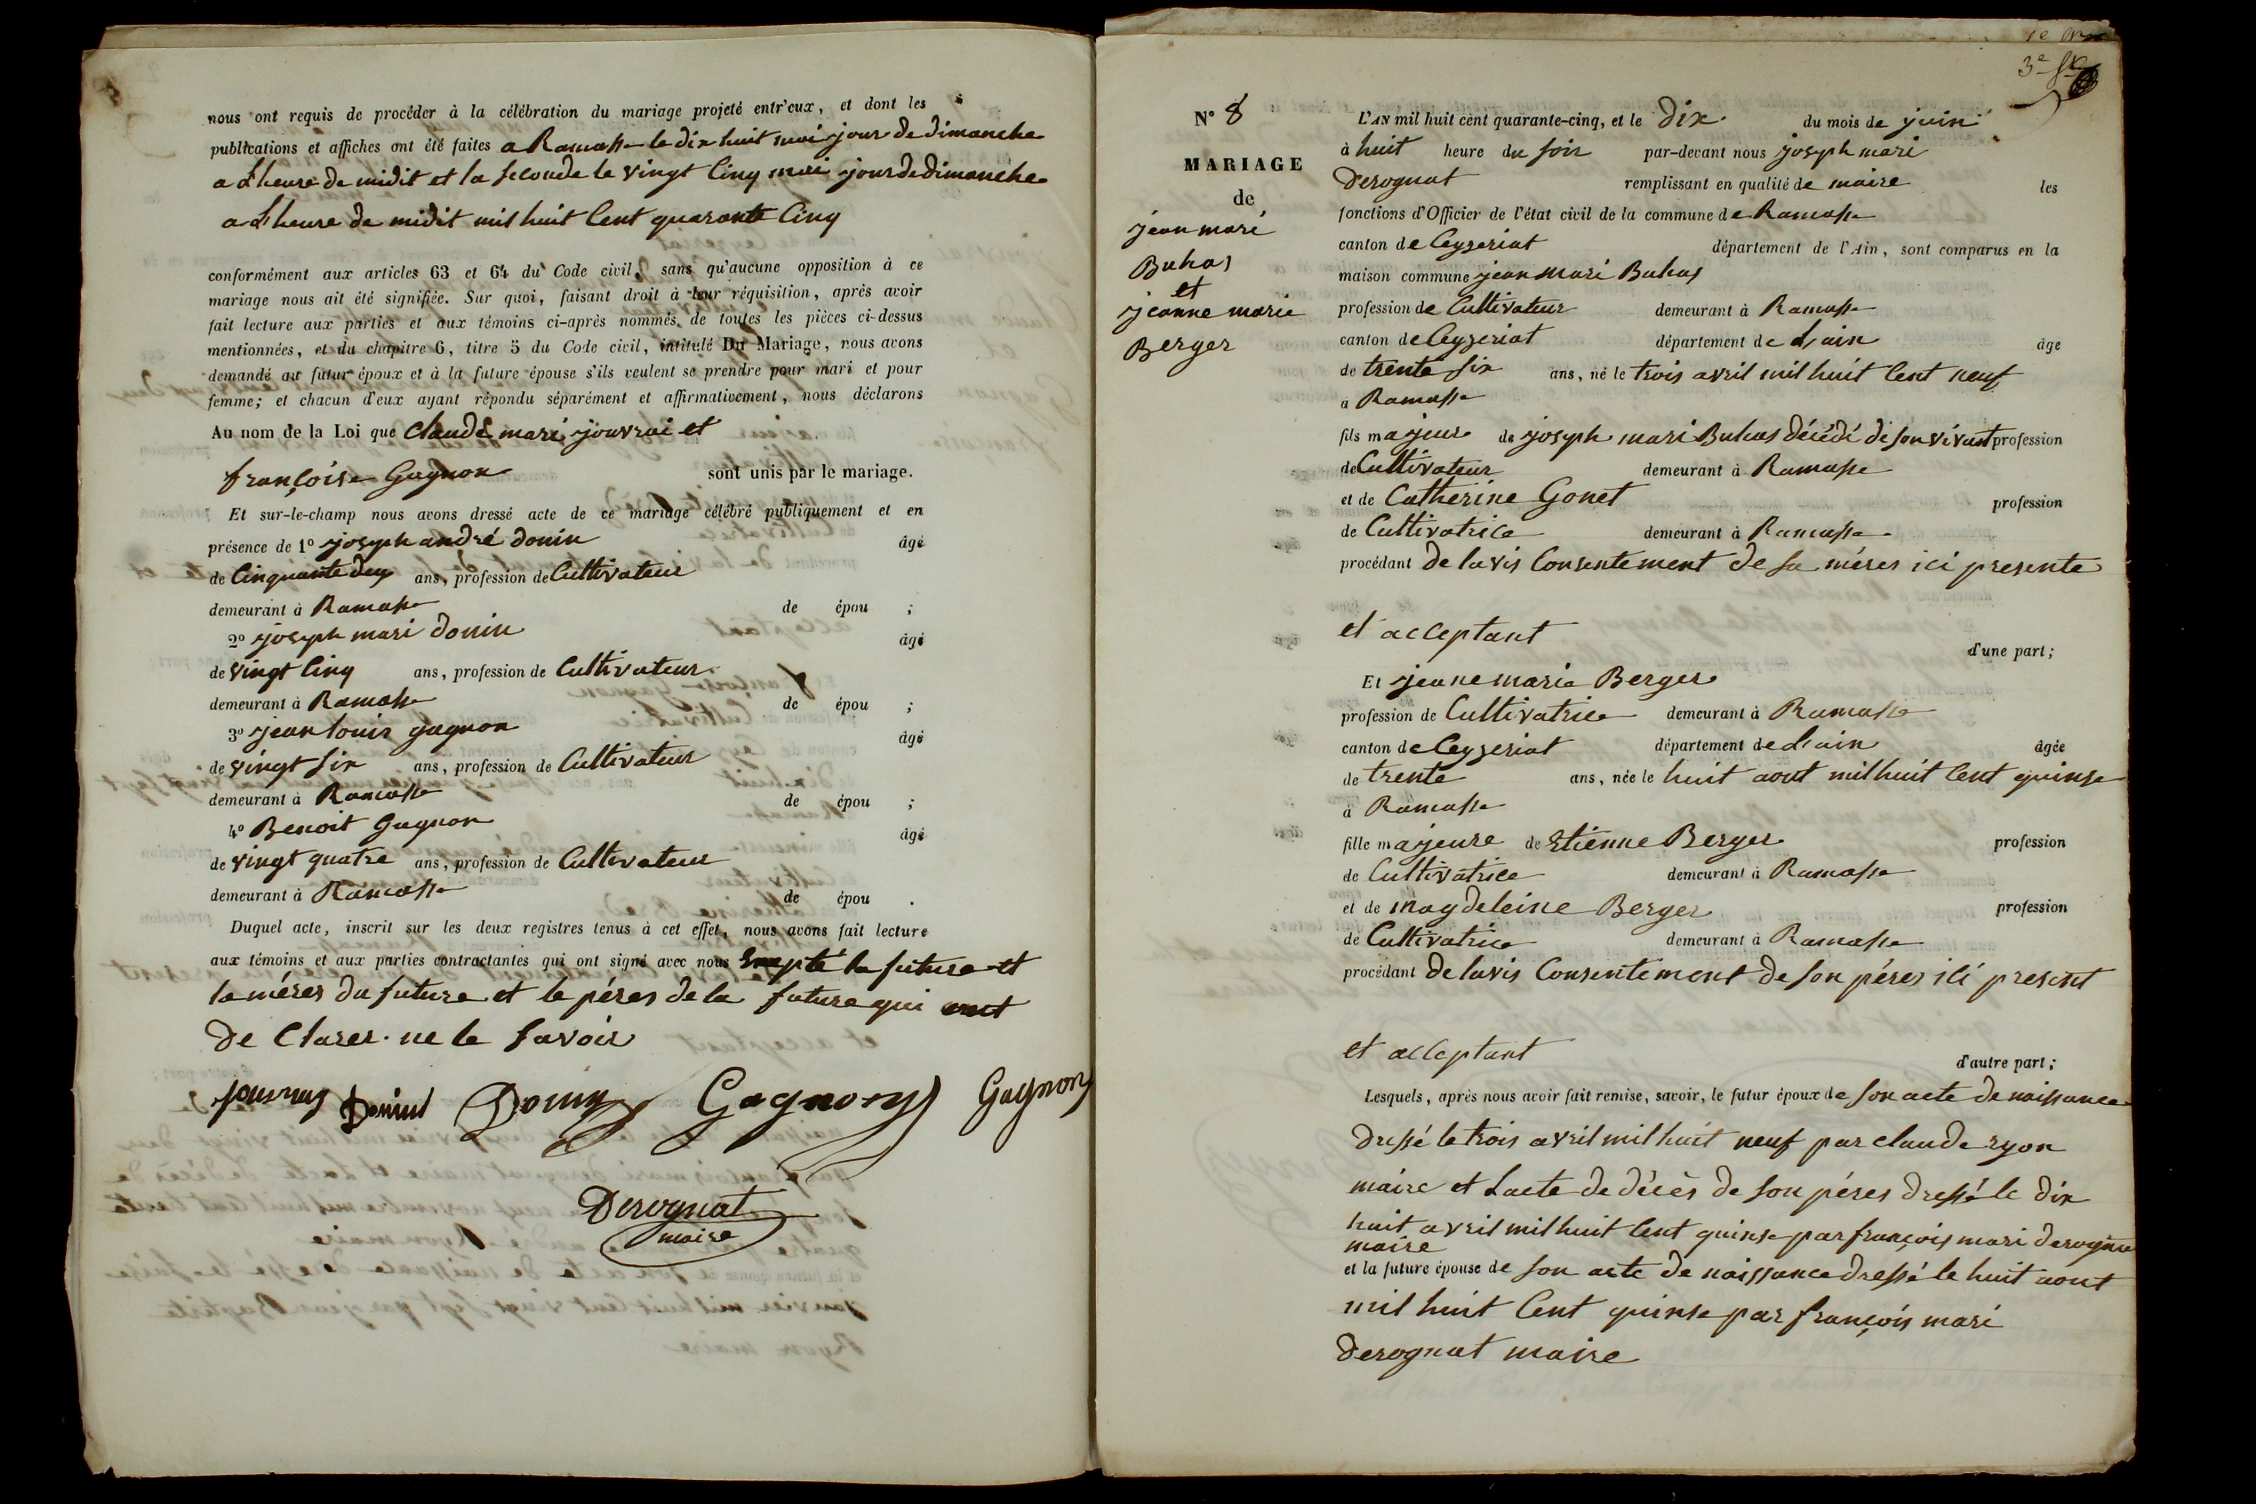 nous ont requis de procéder à la célébration du mariage projeté entr'eux, et dont les
publications et affiches ont été faites a Ramasse le dix huit mai jour de dimanche
a L'heure de midit et la seconde le vingt Cinq mai jour de dimanche
a L'heure de midit mil huit Cent quarante Cinq
conformément aux articles 63 et 64 du Code civil, sans qu'aucune opposition à ce
mariage nous ait été signifiée. Sur quoi, faisant droit à leur réquisition, après avoir
fait lecture aux parties et aux témoins ci-après nommés, de toutes les pièces ci-dessus
mentionnées, et du chapitre 6, titre 5 du Code civil, intitulé Du Mariage, nous avons
demandé au futur époux et à la future épouse s'ils veulent se prendre pour mari et pour
femme; et chacun d'eux ayant répondu séparément et affirmativement, nous déclarons
Au nom de la Loi que Claude mari jouvrai et
françoise Gagnon sont unis par le mariage.
Et sur-le-champ nous avons dressé acte de ce mariage célébré publiquement et en
présence de 1º joseph andré donin âgé
de Cinquante deux ans, profession de Cultivateur
demeurant à Ramasse de épou ;
2º joseph mari donin âgé
de vingt Cinq ans, profession de Cultivateur
demeurant à Ramasse de épou ;
3º jean louis gagnon âgé
de vingt six ans, profession de Cultivateur
demeurant à Ramasse de épou ;
4º Benoit Gagnon âgé
de vingt quatre ans, profession de Cultivateur
demeurant à Ramasse de épou .
Duquel acte, inscrit sur les deux registres tenus à cet effet, nous avons fait lecture
aux témoins et aux parties contractantes qui ont signé avec nous Excepté la future et
la méres du future et le péres de la future qui ont
de Clarer ne le savoir
Donin Gagnon Gagnon
Derognat
maire
3e
Nº 8
MARIAGE
de
jean mari
Buhas
et
jeanne marie
Berger
L'AN mil huit cent quarante-cinq, et le dix du mois de juin
à huit heure du soir par-devant nous joseph mari
Derognat remplissant en qualité de maire les
fonctions d'Officier de l'état civil de la commune de Ramasse
canton de Ceyzeriat département de l'Ain, sont comparus en la
maison commune jean mari Buhas
profession de Cultivateur demeurant à Ramasse
canton de Ceyzeriat département de L'ain âge
de trente six ans, né le trois avril mil huit Cent neuf
à Ramasse
fils majeur de joseph mari Buhas décédé de son vivant profession
de Cultivateur demeurant à Ramasse
et de Catherine Gonet profession
de Cultivatrice demeurant à Ramasse
procédant de lavis Consentement de sa méres ici presente
et acceptant d'une part;
Et jeane marie Berger
profession de Cultivatrice demeurant à Ramasse
canton de Ceyzeriat département de L'ain âgée
de trente ans, née le huit aout mil huit Cent quinse
à Ramasse
fille majeure de Etienne Berger profession
de Cultivatrice demeurant à Ramasse
et de magdeleine Berger profession
de Cultivatrice demeurant à Ramasse
procédant de lavis Consentement de son péres ici present
et acceptant d'autre part;
Lesquels, après nous avoir fait remise, savoir, le futur époux de son acte de naissance
dressé le trois avril mil huit neuf par claude ryon
maire et Lacte de décès de son péres dressé le dix
huit avril mil huit Cent quinse par françois mari derognat
maire
et la future épouse de son acte de naissance dressé le huit aout
mil huit Cent quinse par françois mari
derognat maire